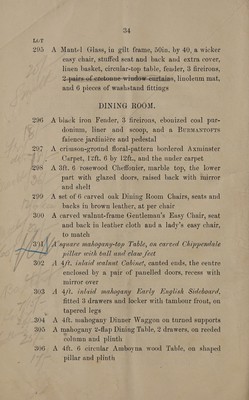 34
LOT
295 A Mantel Glass, in gilt frame, 50in. by 40, a wicker
easy chair, stuffed seat and back and extra cover,
linen basket, circular-top table, fender, 3 fireirons,
2 pairs of cretonne window curtains, linoleum mat,
and 6 pieces of washstand fittings
DINING ROOM.
296 A black iron Fender, 3 fireirons, ebonized coal pur-
donium, liner and scoop, and a BURMANTOFTS
faience jardinière and pedestal
297 A crimson-ground floral-pattern bordered Axminster
Carpet, 12ft. 6 by 12ft., and the under carpet
298 A 3ft. 6 rosewood Cheffonier, marble top, the lower
part with glazed doors, raised back with mirror
and shelf
299 A set of 6 carved oak Dining Room Chairs, seats and
backs in brown leather, at per chair
300 A carved walnut-frame Gentleman's Easy Chair, seat
and back in leather cloth and a lady's easy chair,
to match
301 A square mahogany-top Table, on carved Chippendale
pillar with ball and claw feet
302 A 4ft. inlaid walnut Cabinet, canted ends, the centre
enclosed by a pair of panelled doors, recess with
mirror over
303 A 4ft. inlaid mahogany Early English Sideboard,
fitted 3 drawers and locker with tambour front, on
tapered legs
304 A 4ft. mahogany Dinner Waggon on turned supports
305 A mahogany 2-flap Dining Table, 2 drawers, on reeded
column and plinth
306 A 4ft. 6 circular Amboyna wood Table, on shaped
pillar and plinth